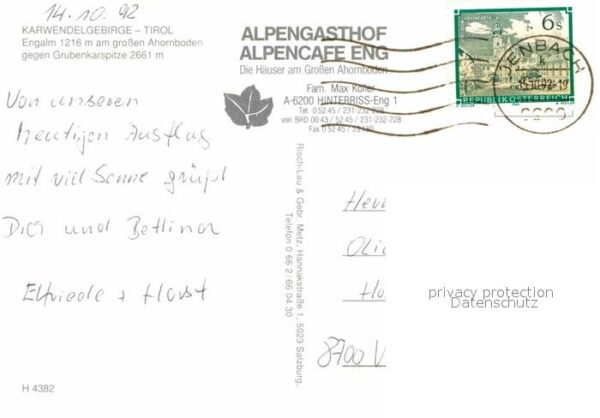 14.10.92
KARWENDELGEBIRGE – TIROL
Engalm 1216 m am großen Ahornboden
gegen Grubenkarspitze 2661 m
ALPENGASTHOF
ALPENCAFE ENG
Die Häuser am Großen Ahornboden
Fam. Max Kofler
A-6200 HINTERRISS-Eng 1
Tel. 0 52 45 / 231-232-228
von BRD 00 43 / 52 45 / 231-232-228
Fax 0 52 45 /
6s
REPUBLIK ÖSTERREICH
JENBACH
Von unseren
heutigen Ausflug
mit viel Sonne grüßt
Dich und Bettina
Elfriede + Horst
Risch-Lau & Gebr. Metz, Hannakstraße 1, 5023 Salzburg.
Telefon 0 66 2 / 66 04 30
8700 W
privacy protection
Datenschutz
H 4382